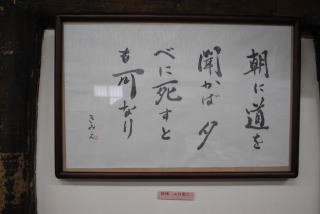 朝に道を
聞かば 夕
べに死すと
も可なり
きみゑ